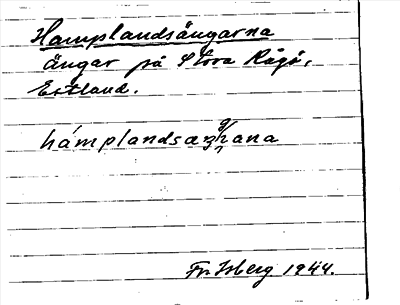 Hamplandsängarna
ängar på Stora Rågö,
Estland.
hámplandsæ
Fr. Isberg 1944.